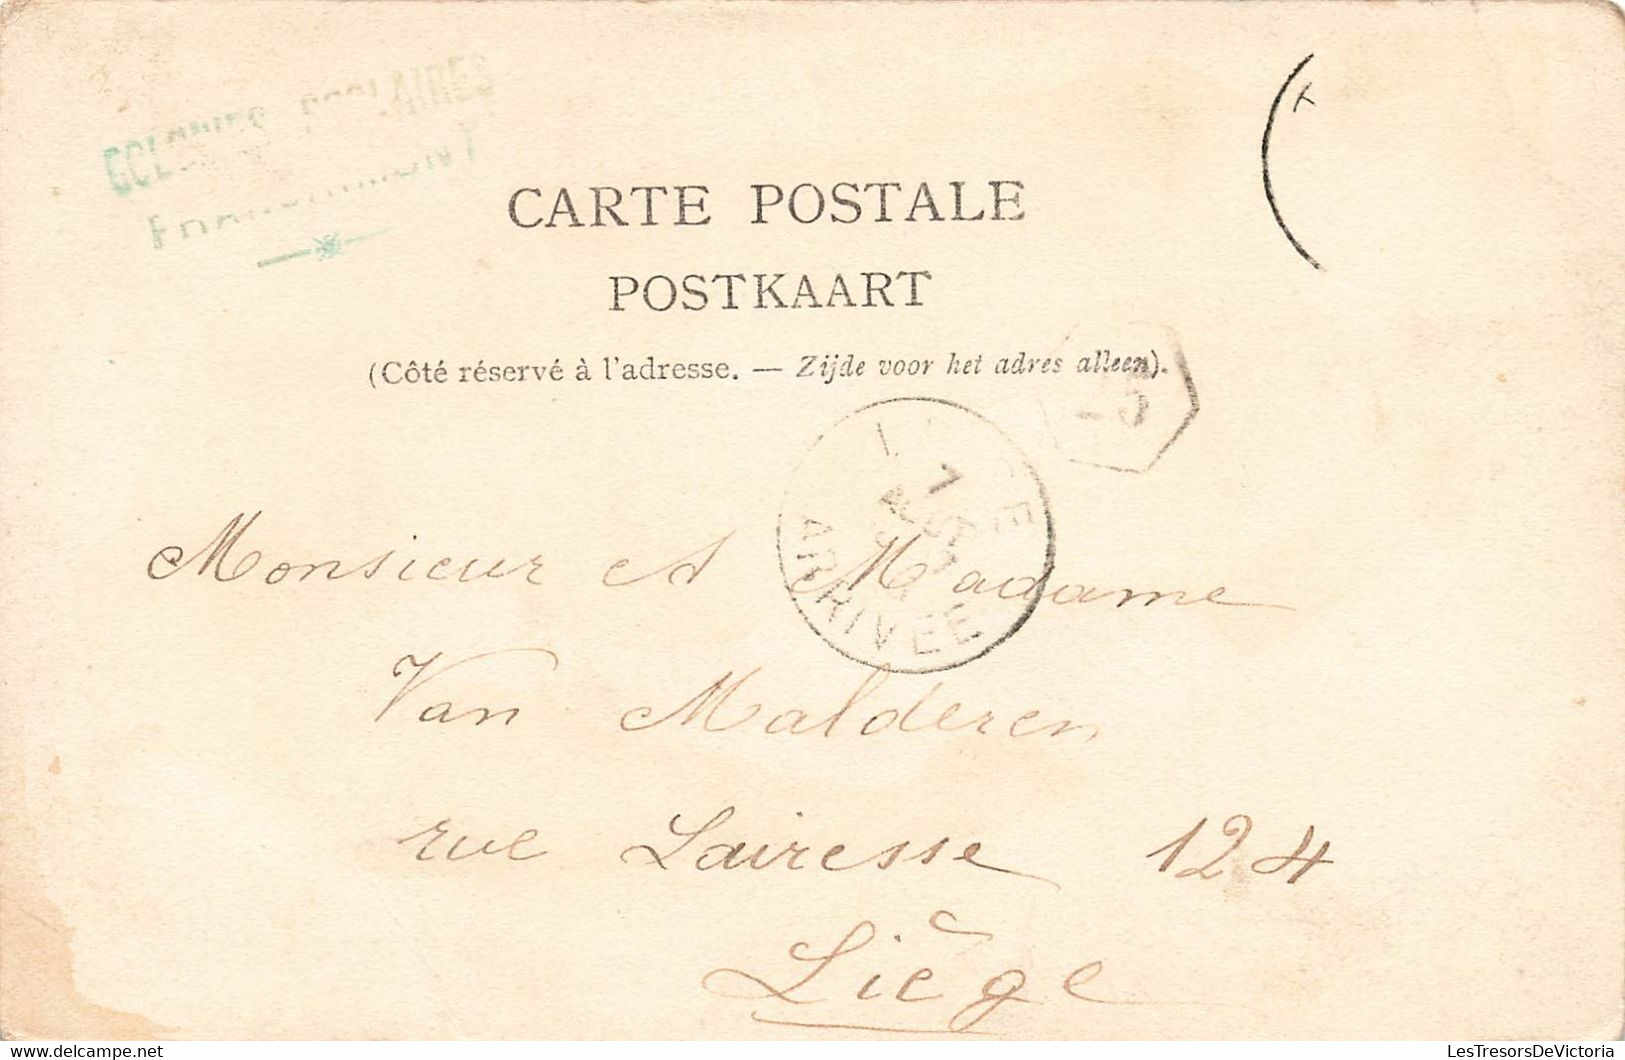 CARTE POSTALE
POSTKAART
(Côté réservé à l'adresse. — Zijde voor het adres alleen).
-5
7
ARRIVÉE
Monsieur et Madame
Van Malderen
rue Lairesse 124
Liège
www.delcampe.net
LesTresorsDeVictoria